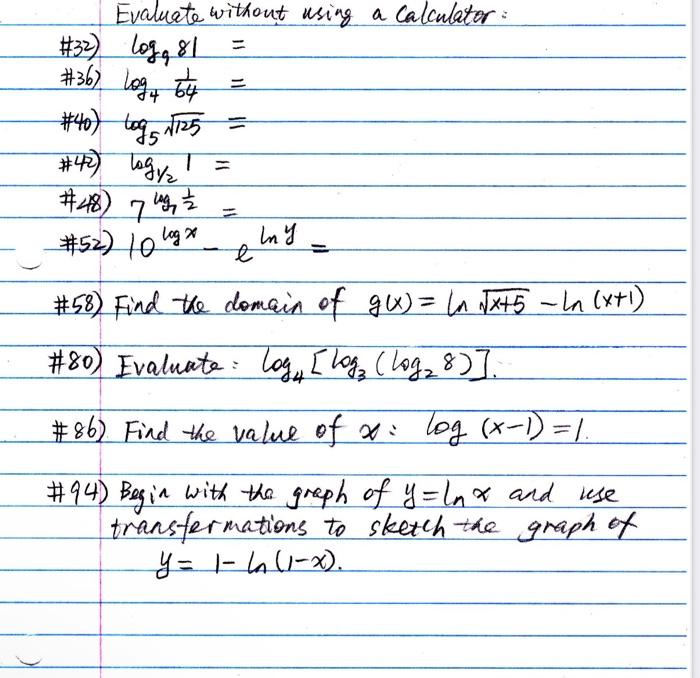 Evaluate without using a Calculator:
#32) log₉ 81 =
#36) log₄ 1/64 =
#40) log₅ √125 =
#42) log_{1/2} 1 =
#48) 7^{log₇ 1/2} =
#52) 10^{log x} - e^{ln y} =
#58) Find the domain of g(x) = ln √x+5 - ln (x+1)
#80) Evaluate: log₄ [log₃ (log₂ 8)].
#86) Find the value of x: log (x-1) = 1.
#94) Begin with the graph of y = ln x and use
transformations to sketch the graph of
y = 1 - ln (1-x).